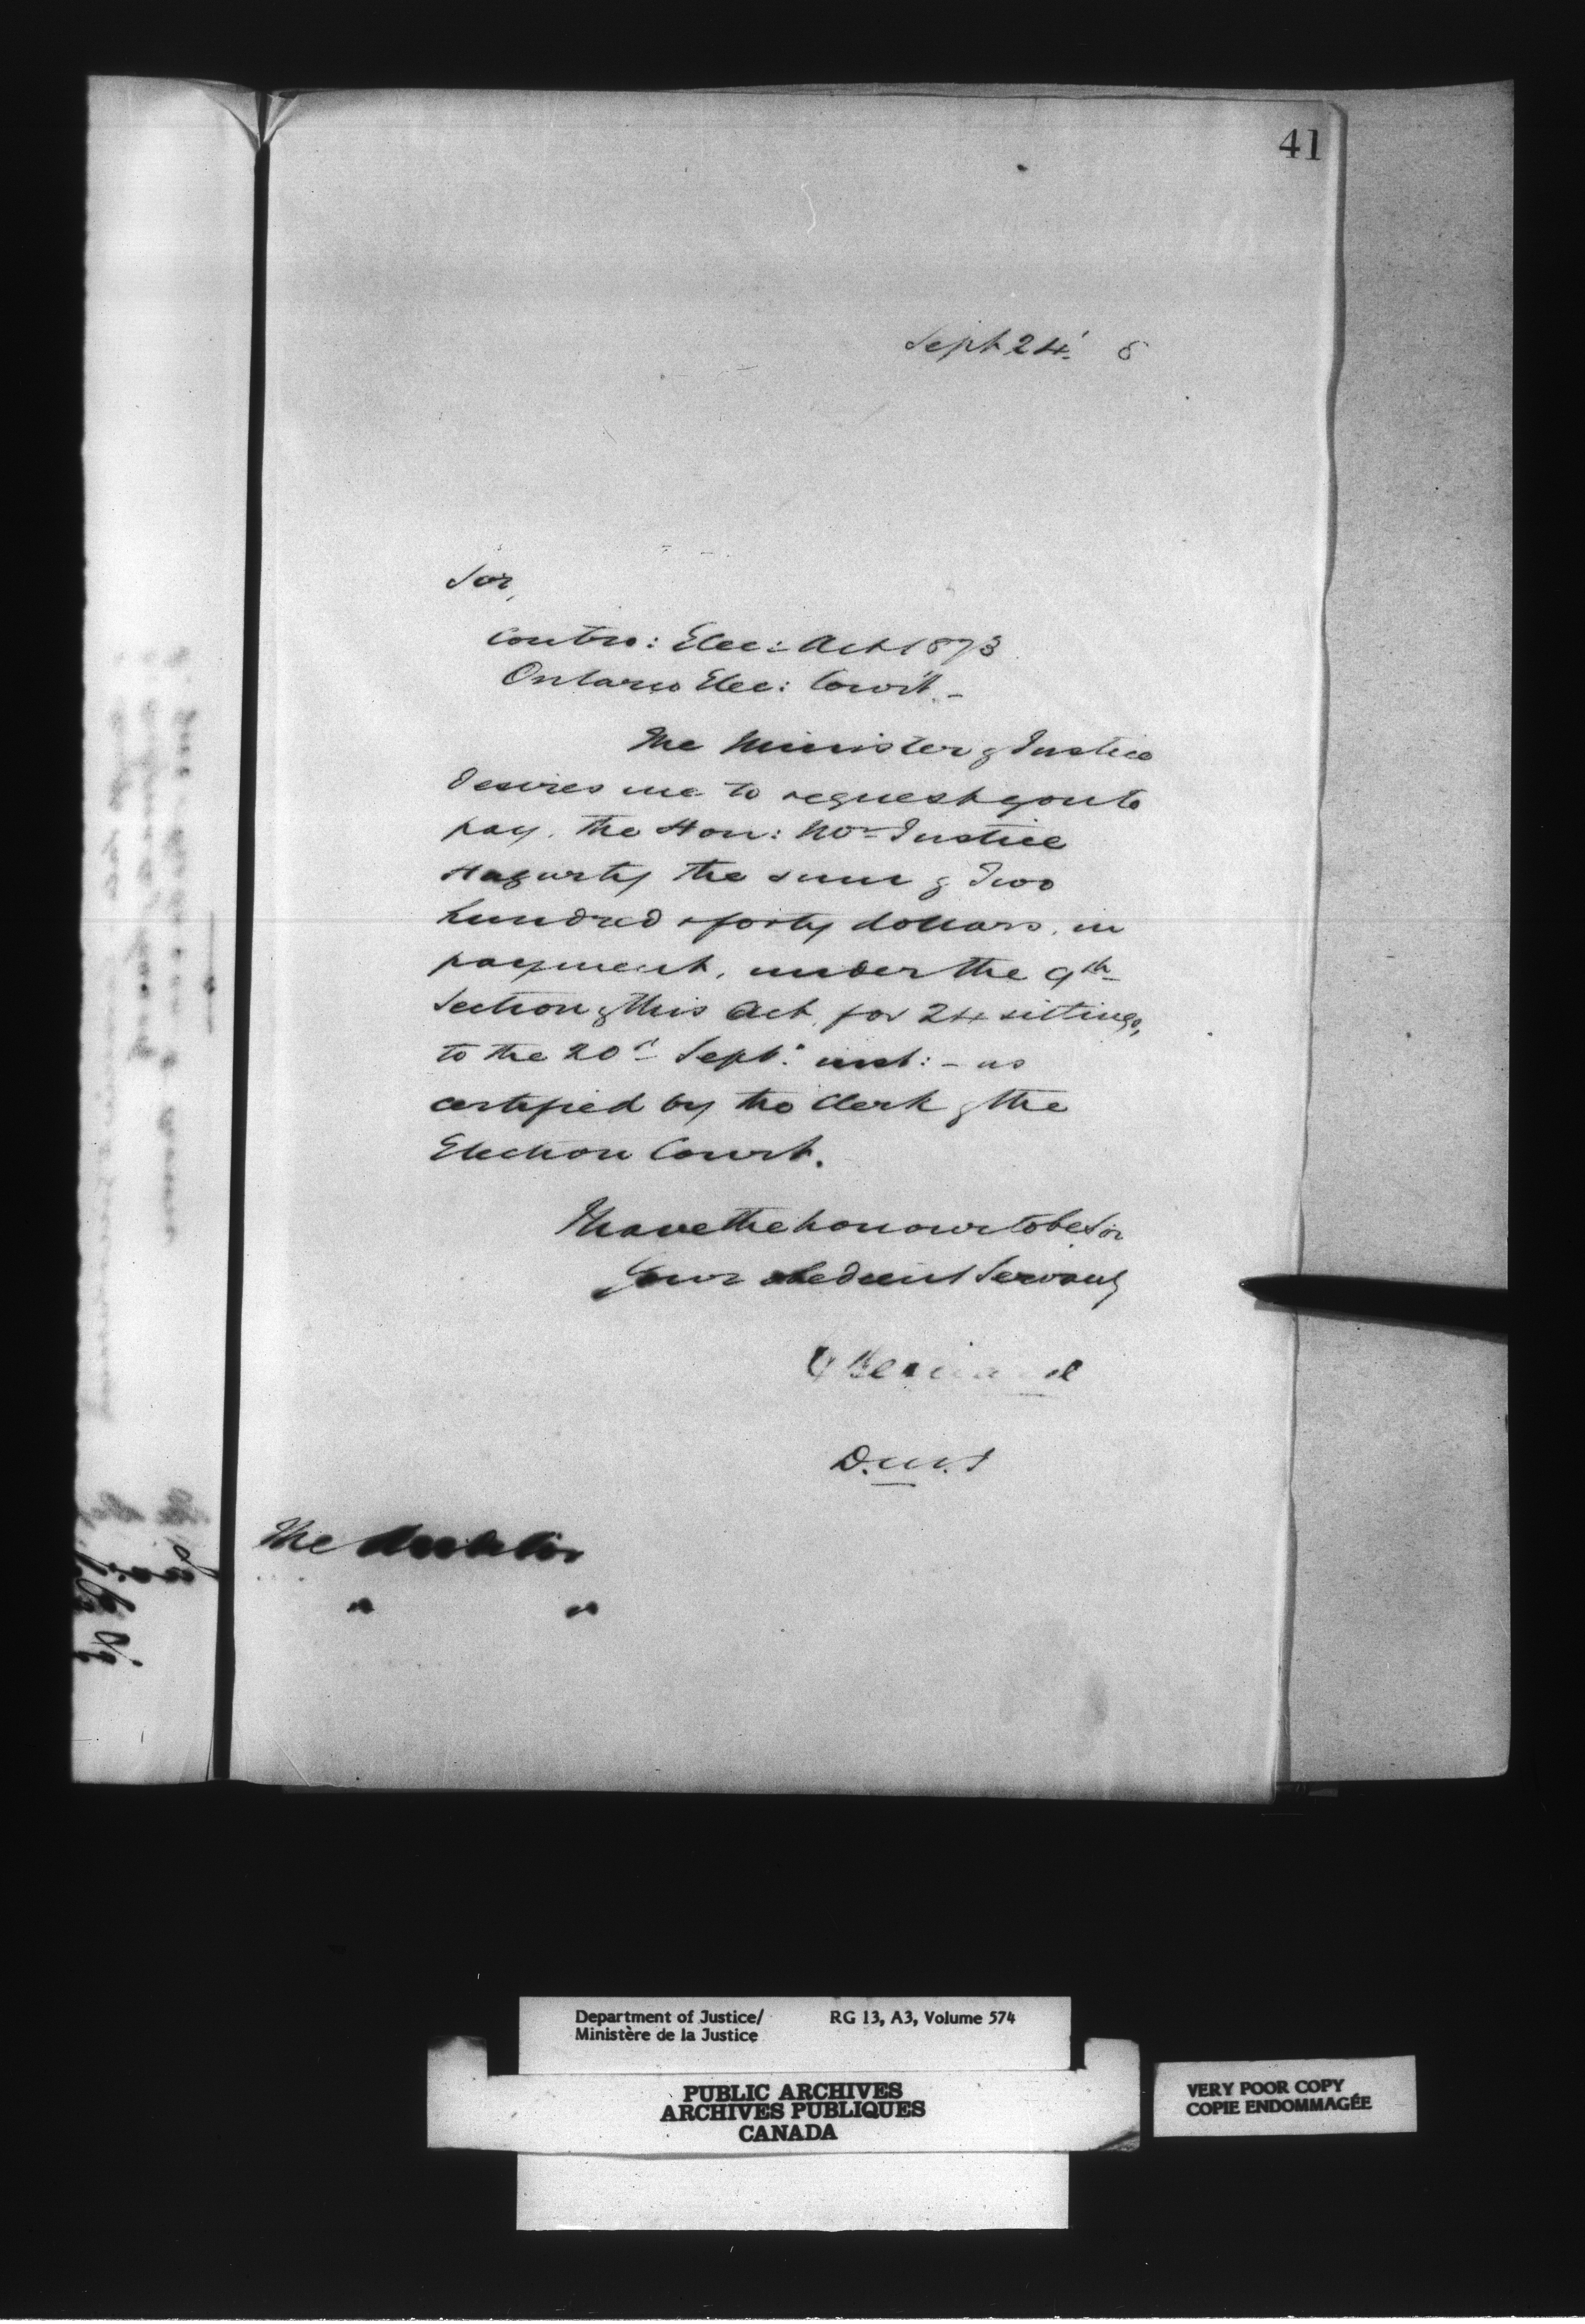 41
Sept 24. 8
Sir,
Contro: Elec: Act 1873
Ontario Elec: Court. -
The Minister of Justice
desires me to request you to
pay, the Hon: Mr Justice
Hagarty the sum of Two
hundred & forty dollars, in
payment, under the 9th
Section of this Act, for 24 sittings,
to the 20th Sept: inst: - as
certified by the Clerk of the
Election Court.
I have the honour to be, Sir
Your obedient Servant,
Bernard
D.M.J
The Auditor
" "
Department of Justice/ RG 13, A3, Volume 574
Ministère de la Justice
PUBLIC ARCHIVES
ARCHIVES PUBLIQUES
CANADA
VERY POOR COPY
COPIE ENDOMMAGÉE